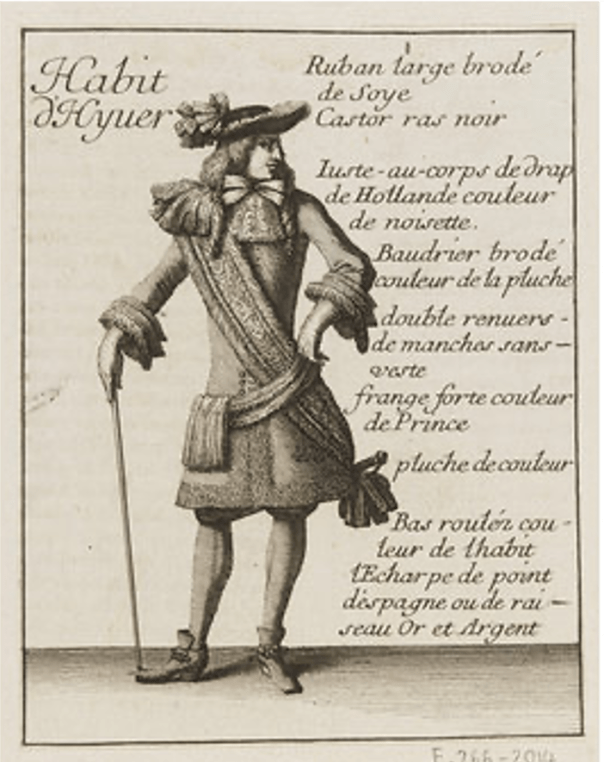 Habit
d'Hyuer
Ruban large brodé
de Soye
Castor ras noir
Iuste-au-corps de drap
de Hollande couleur
de noisette.
Baudrier brodé
couleur de la pluche
double renuers -
de manches sans -
veste
frange forte couleur
de Prince
pluche de couleur
Bas rouléz cou -
leur de lhabit
l'Echarpe de point
déspagne ou de rai -
seau Or et Argent
E.266-2014